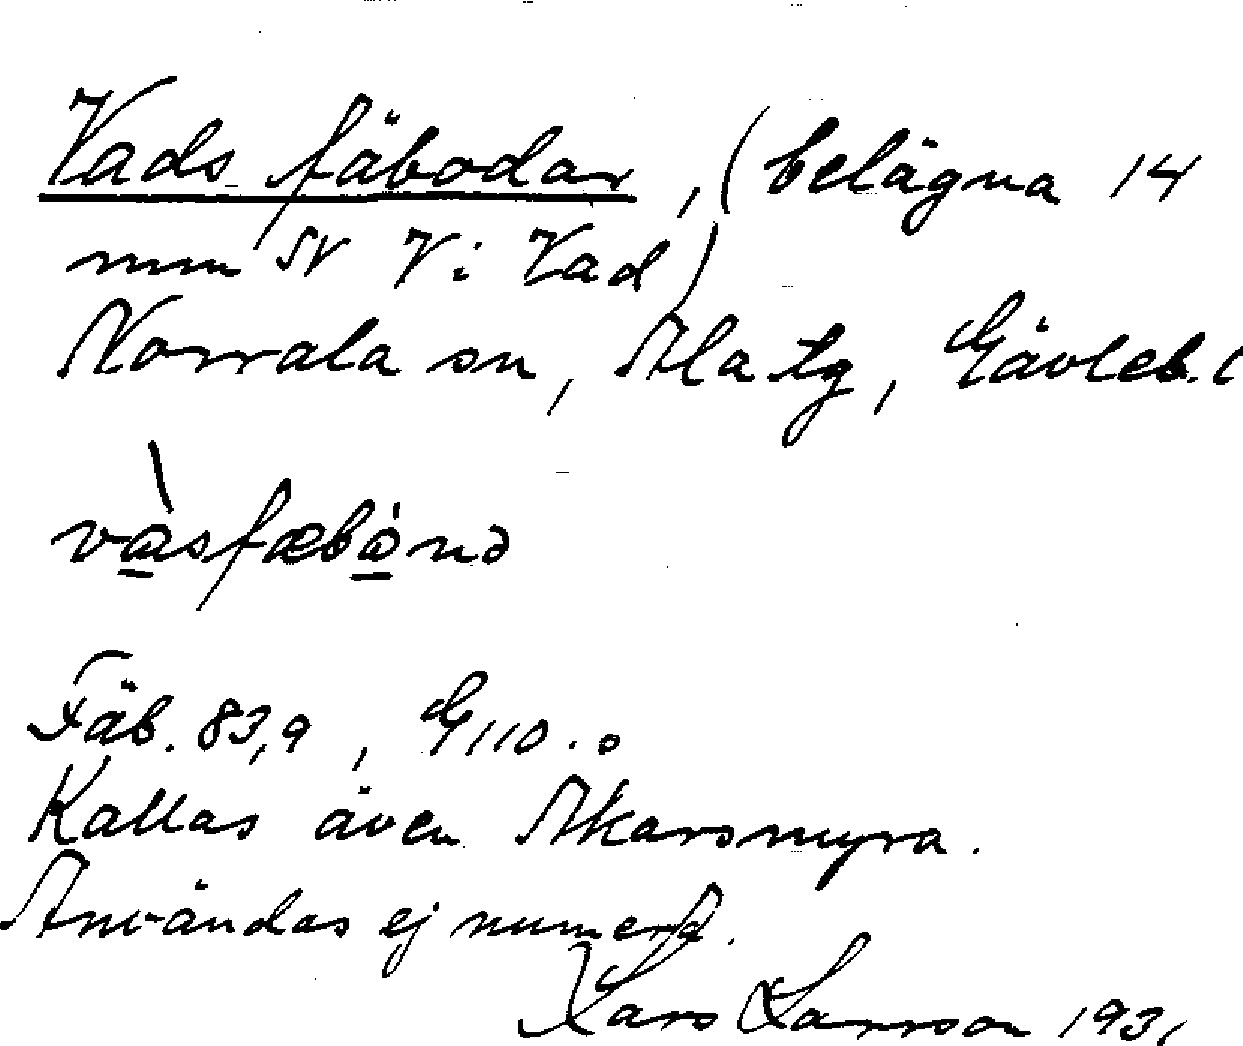 Vads fäbodar, (belägna 14
mm SV V i Vad)
Norrala sn, Ala tg, Gävleb. l
vàsfæbònə
Fäb. 83,9, G 110.
Kallas även Akarsmyra.
Användas ej numera.
Lars Larsson 1931